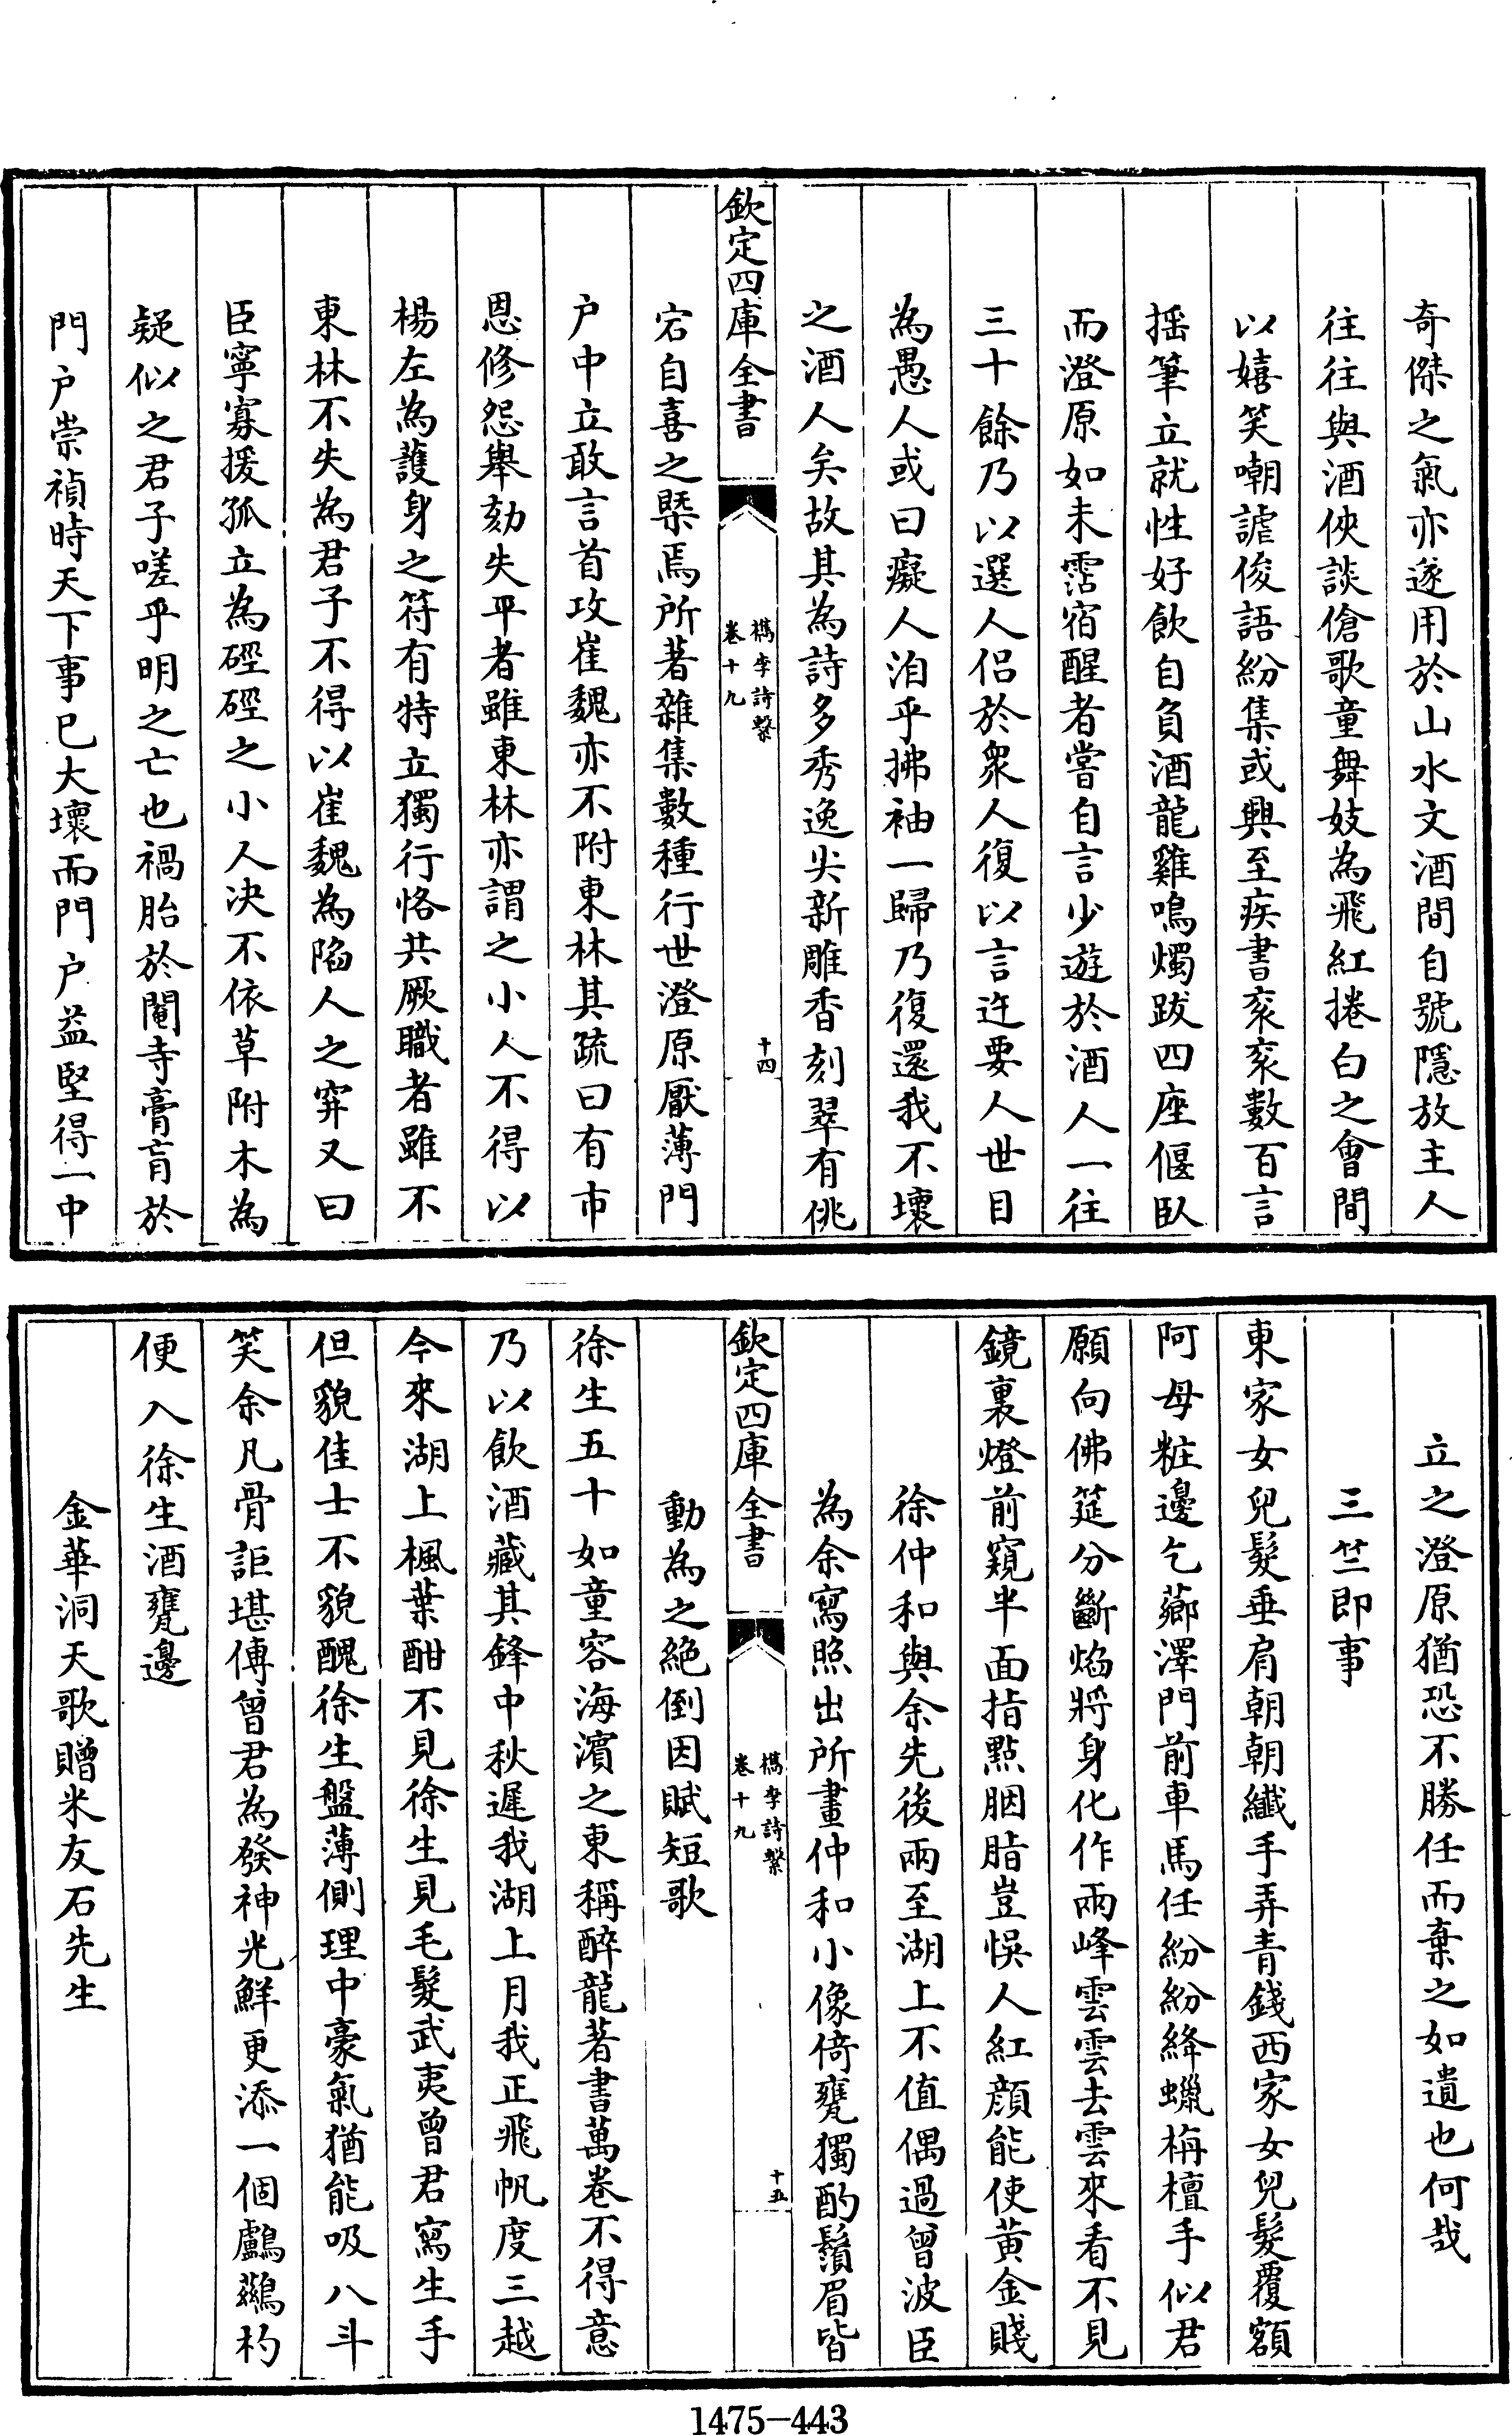 奇傑之氣亦遂用於山水文酒間自號隱放主人
往往與酒俠談傖歌童舞妓為飛紅捲白之會間
以嬉笑嘲謔俊語紛集或興至疾書衮衮數百言
揺筆立就性好飲自負酒龍雞鳴燭跋四座偃臥
而澄原如未霑宿醒者嘗自言少遊於酒人一往
三十餘乃以選人侣於衆人復以言迕要人世目
為愚人或曰癡人洎乎拂袖一歸乃復還我不壞
之酒人矣故其為詩多秀逸尖新雕香刻翠有佻
欽定四庫全書
檇李詩繫
卷十九
十四
宕自喜之槩焉所著雜集數種行世澄原厭薄門
户中立敢言首攻崔魏亦不附東林其疏曰有市
恩修怨舉劾失平者雖東林亦謂之小人不得以
楊左為護身之符有特立獨行恪共厥職者雖不
東林不失為君子不得以崔魏為陷人之穽又曰
臣寧寡援孤立為硜硜之小人决不依草附木為
疑似之君子嗟乎明之亡也禍胎於閹寺膏肓於
門户崇禎時天下事已大壞而門户益堅得一中
立之澄原猶恐不勝任而棄之如遺也何哉
三竺即事
東家女兒髮垂肩朝朝纖手弄青錢西家女兒髮覆額
阿母粧邊乞薌澤門前車馬任紛紛絳蠟栴檀手似君
願向佛筵分斷焰將身化作兩峰雲雲去雲來看不見
鏡裏燈前窺半面指點胭脂豈悞人紅顔能使黄金賤
徐仲和與余先後兩至湖上不值偶過曾波臣
為余寫照出所畫仲和小像倚甕獨酌鬚眉皆
欽定四庫全書
檇李詩繫
卷十九
十五
動為之絶倒因賦短歌
徐生五十如童容海濱之東稱醉龍著書萬卷不得意
乃以飲酒藏其鋒中秋遲我湖上月我正飛帆度三越
今來湖上楓葉酣不見徐生見毛髮武夷曾君寫生手
但貌佳士不貌醜徐生盤薄側理中豪氣猶能吸八斗
笑余凡骨詎堪傳曾君為發神光鮮更添一個鸕鷀杓
便入徐生酒甕邊
金華洞天歌贈米友石先生
1475-443